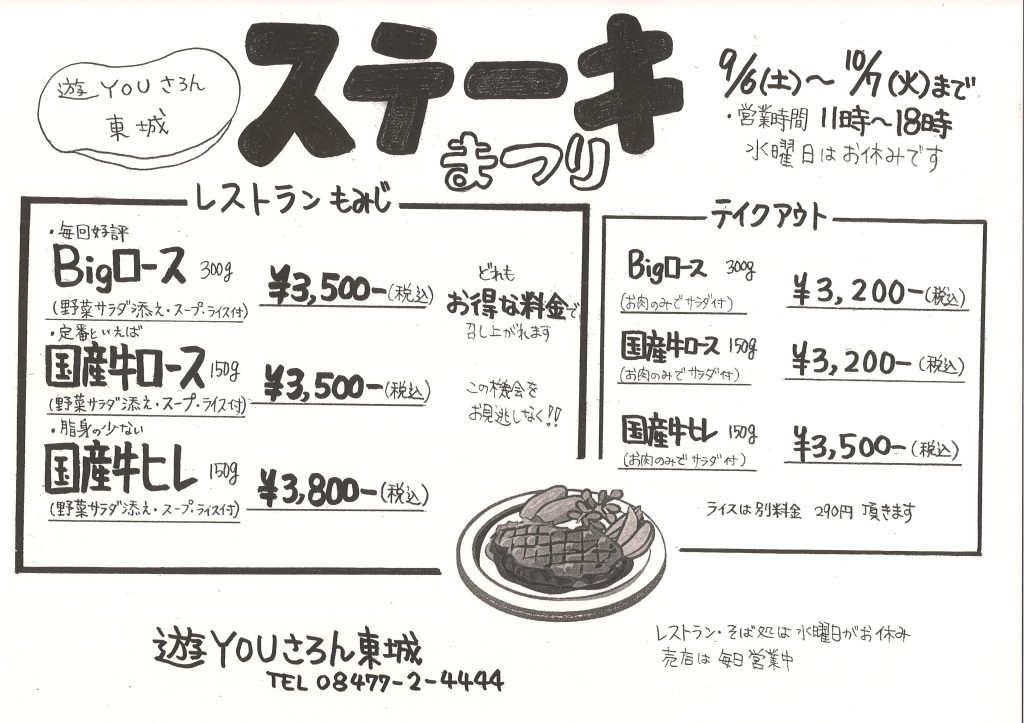 遊YOUさろん
東城
ステーキ
まつり
9/6(土)～10/7(火)まで
・営業時間 11時～18時
水曜日はお休みです
レストラン もみじ
・毎回好評
Bigロース 300g ¥3,500-(税込)
(野菜サラダ添え・スープ・ライス付)
・定番といえば
国産牛ロース 150g ¥3,500-(税込)
(野菜サラダ添え・スープ・ライス付)
・脂身の少ない
国産牛ヒレ 150g ¥3,800-(税込)
(野菜サラダ添え・スープ・ライス付)
どれも
お得な料金で
召し上がれます
この機会を
お見逃しなく!!
テイクアウト
Bigロース 300g ¥3,200-(税込)
(お肉のみでサラダ付)
国産牛ロース 150g ¥3,200-(税込)
(お肉のみでサラダ付)
国産牛ヒレ 150g ¥3,500-(税込)
(お肉のみでサラダ付)
ライスは別料金 290円 頂きます
遊YOUさろん東城
TEL 08477-2-4444
レストラン・そば処は水曜日がお休み
売店は毎日営業中